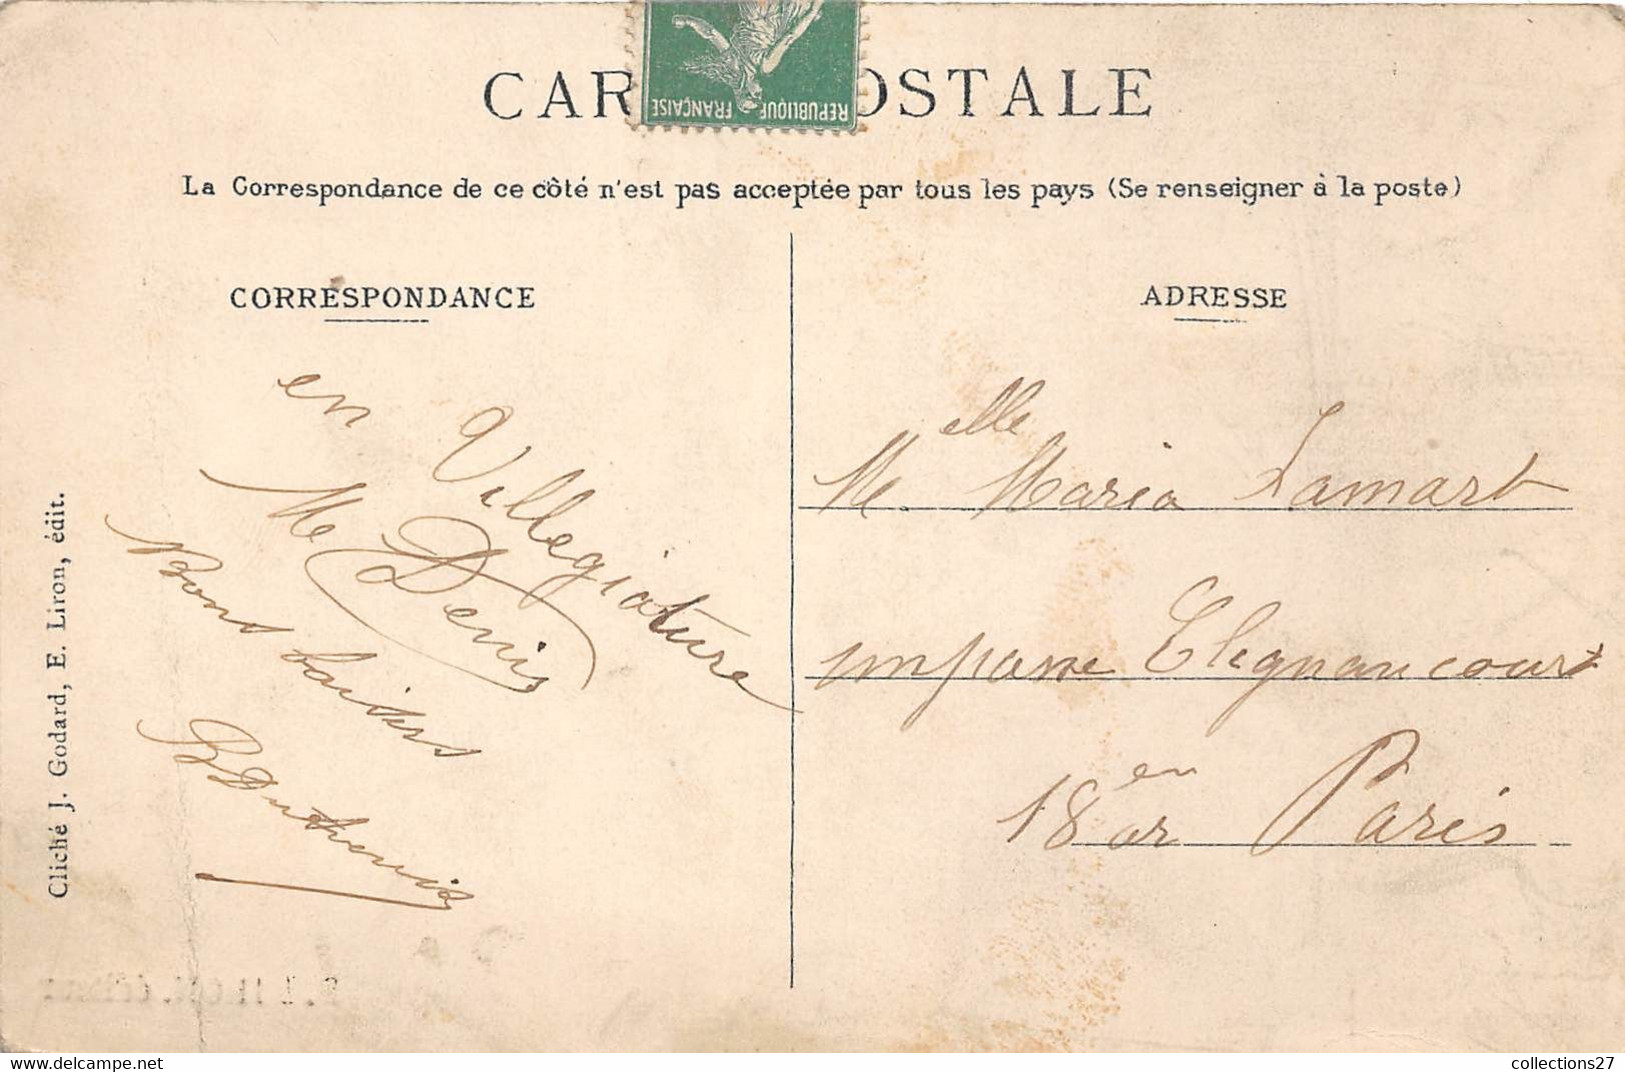 CAR OSTALE
REPUBLIQUE FRANÇAISE
La Correspondance de ce côté n'est pas acceptée par tous les pays (Se renseigner à la poste)
CORRESPONDANCE
en Villegiature
Me Denis
Bons baisers
ADRESSE
Melle Maria Lamart
impasse Clignancourt
18en ar Paris
Cliché J. Godard, E. Liron, édit.
collections27